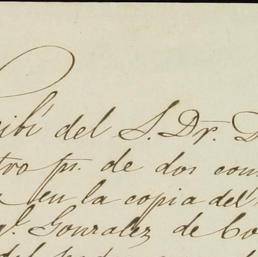 cibí del S. Dr. D
tro ps. de dos com
en la copia del
Gonzalez de Co
del